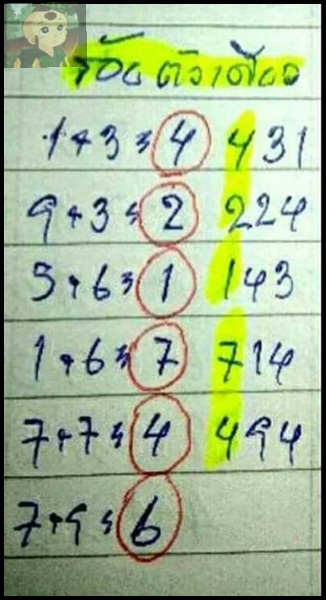 ร้อย ตัวเดียว
1+3=4 431
9+3=2 224
5+6=1 143
1+6=7 714
7+7=4 494
7+9=6